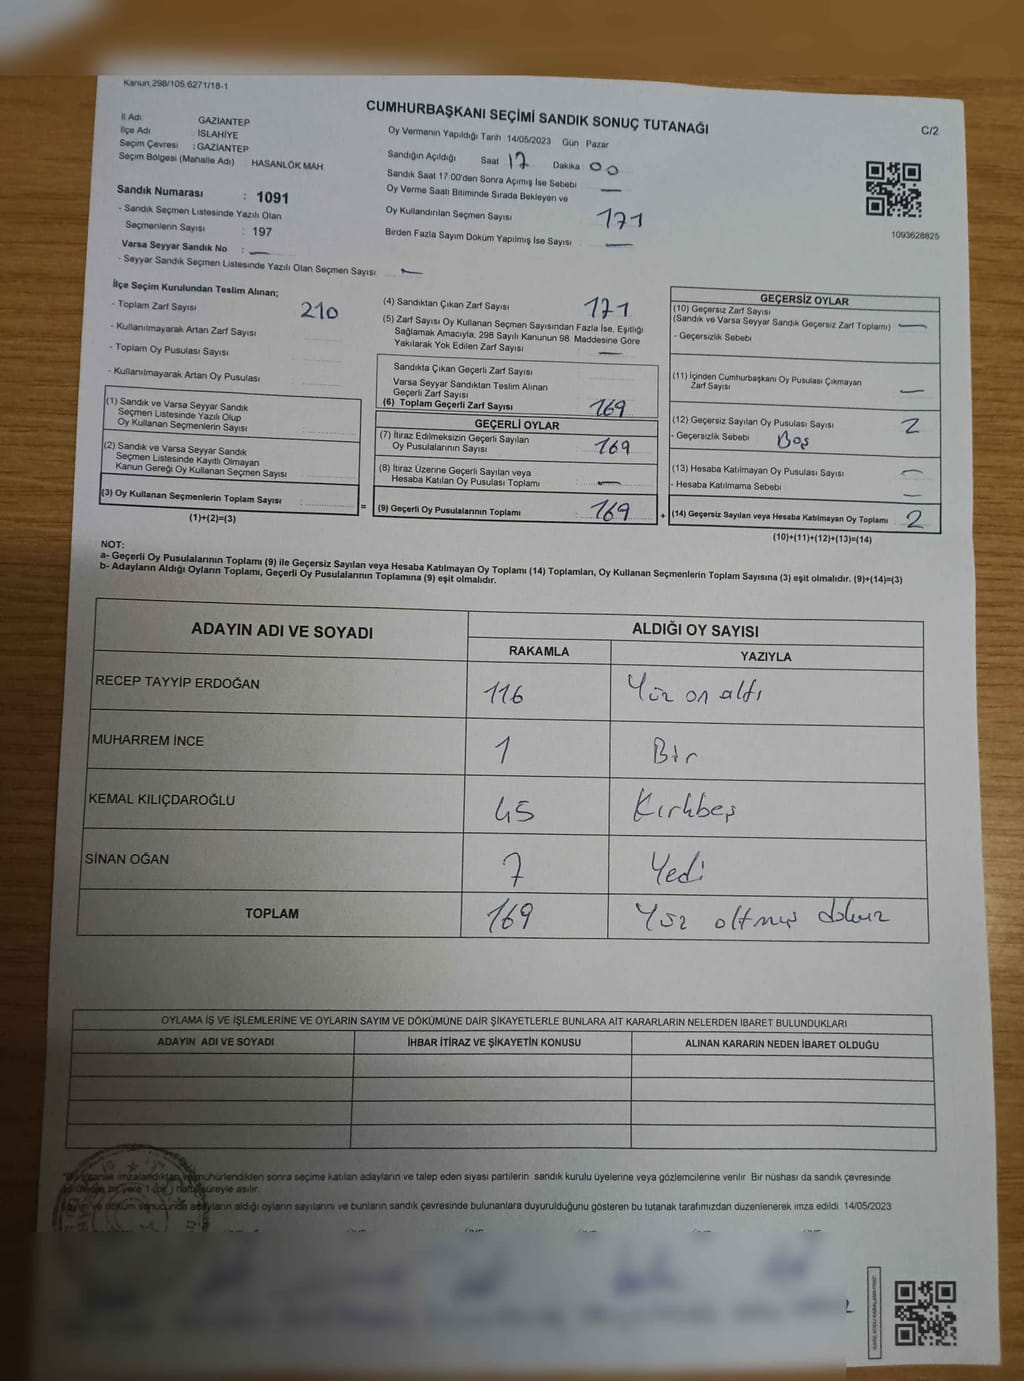 Kanun:298/105,6271/18-1
CUMHURBAŞKANI SEÇİMİ SANDIK SONUÇ TUTANAĞI
C/2
İl Adı GAZİANTEP
İlçe Adı : İSLAHİYE
Seçim Çevresi : GAZİANTEP
Seçim Bölgesi (Mahalle Adı) : HASANLÖK MAH
Sandık Numarası : 1091
- Sandık Seçmen Listesinde Yazılı Olan
Seçmenlerin Sayısı : 197
Varsa Seyyar Sandık No : —
- Seyyar Sandık Seçmen Listesinde Yazılı Olan Seçmen Sayısı —
Oy Vermenin Yapıldığı Tarih 14/05/2023 Gün Pazar
Sandığın Açıldığı Saat 17 Dakika 00
Sandık Saat 17.00'den Sonra Açılmış İse Sebebi —
Oy Verme Saati Bitiminde Sırada Bekleyen ve
Oy Kullandırılan Seçmen Sayısı 171
Birden Fazla Sayım Döküm Yapılmış İse Sayısı : —
1093628825
İlçe Seçim Kurulundan Teslim Alınan;
- Toplam Zarf Sayısı 210
- Kullanılmayarak Artan Zarf Sayısı
- Toplam Oy Pusulası Sayısı
- Kullanılmayarak Artan Oy Pusulası
(1) Sandık ve Varsa Seyyar Sandık
Seçmen Listesinde Yazılı Olup
Oy Kullanan Seçmenlerin Sayısı
(2) Sandık ve Varsa Seyyar Sandık
Seçmen Listesinde Kayıtlı Olmayan
Kanun Gereği Oy Kullanan Seçmen Sayısı
(3) Oy Kullanan Seçmenlerin Toplam Sayısı
(1)+(2)=(3)
=
(4) Sandıktan Çıkan Zarf Sayısı 171
(5) Zarf Sayısı Oy Kullanan Seçmen Sayısından Fazla İse, Eşitliği
Sağlamak Amacıyla, 298 Sayılı Kanunun 98. Maddesine Göre
Yakılarak Yok Edilen Zarf Sayısı —
Sandıkta Çıkan Geçerli Zarf Sayısı
Varsa Seyyar Sandıktan Teslim Alınan
Geçerli Zarf Sayısı
(6) Toplam Geçerli Zarf Sayısı 169
GEÇERLİ OYLAR
(7) İtiraz Edilmeksizin Geçerli Sayılan
Oy Pusulalarının Sayısı 169
(8) İtiraz Üzerine Geçerli Sayılan veya
Hesaba Katılan Oy Pusulası Toplamı —
(9) Geçerli Oy Pusulalarının Toplamı : 169
+
GEÇERSİZ OYLAR
(10) Geçersiz Zarf Sayısı
(Sandık ve Varsa Seyyar Sandık Geçersiz Zarf Toplamı) —
- Geçersizlik Sebebi
(11) İçinden Cumhurbaşkanı Oy Pusulası Çıkmayan
Zarf Sayısı —
(12) Geçersiz Sayılan Oy Pusulası Sayısı 2
- Geçersizlik Sebebi Boş
(13) Hesaba Katılmayan Oy Pusulası Sayısı —
- Hesaba Katılmama Sebebi —
(14) Geçersiz Sayılan veya Hesaba Katılmayan Oy Toplamı 2
(10)+(11)+(12)+(13)=(14)
NOT:
a- Geçerli Oy Pusulalarının Toplamı (9) ile Geçersiz Sayılan veya Hesaba Katılmayan Oy Toplamı (14) Toplamları, Oy Kullanan Seçmenlerin Toplam Sayısına (3) eşit olmalıdır. (9)+(14)=(3)
b- Adayların Aldığı Oyların Toplamı, Geçerli Oy Pusulalarının Toplamına (9) eşit olmalıdır.
ADAYIN ADI VE SOYADI ALDIĞI OY SAYISI
RAKAMLA YAZIYLA
RECEP TAYYİP ERDOĞAN 116 Yüz on altı
MUHARREM İNCE 1 Bir
KEMAL KILIÇDAROĞLU 45 Kırkbeş
SİNAN OĞAN 7 Yedi
TOPLAM 169 Yüz altmış dokuz
OYLAMA İŞ VE İŞLEMLERİNE VE OYLARIN SAYIM VE DÖKÜMÜNE DAİR ŞİKAYETLERLE BUNLARA AİT KARARLARIN NELERDEN İBARET BULUNDUKLARI
ADAYIN ADI VE SOYADI İHBAR İTİRAZ VE ŞİKAYETİN KONUSU ALINAN KARARIN NEDEN İBARET OLDUĞU
imzalandıktan ve mühürlendikten sonra seçime katılan adayların ve talep eden siyasi partilerin sandık kurulu üyelerine veya gözlemcilerine verilir Bir nüshası da sandık çevresinde
bir yere 1 (bir) hafta süreyle asılır.
Sayım ve döküm sonucunda adayların aldığı oyların sayılarını ve bunların sandık çevresinde bulunanlara duyurulduğunu gösteren bu tutanak tarafımızdan düzenlenerek imza edildi. 14/05/2023